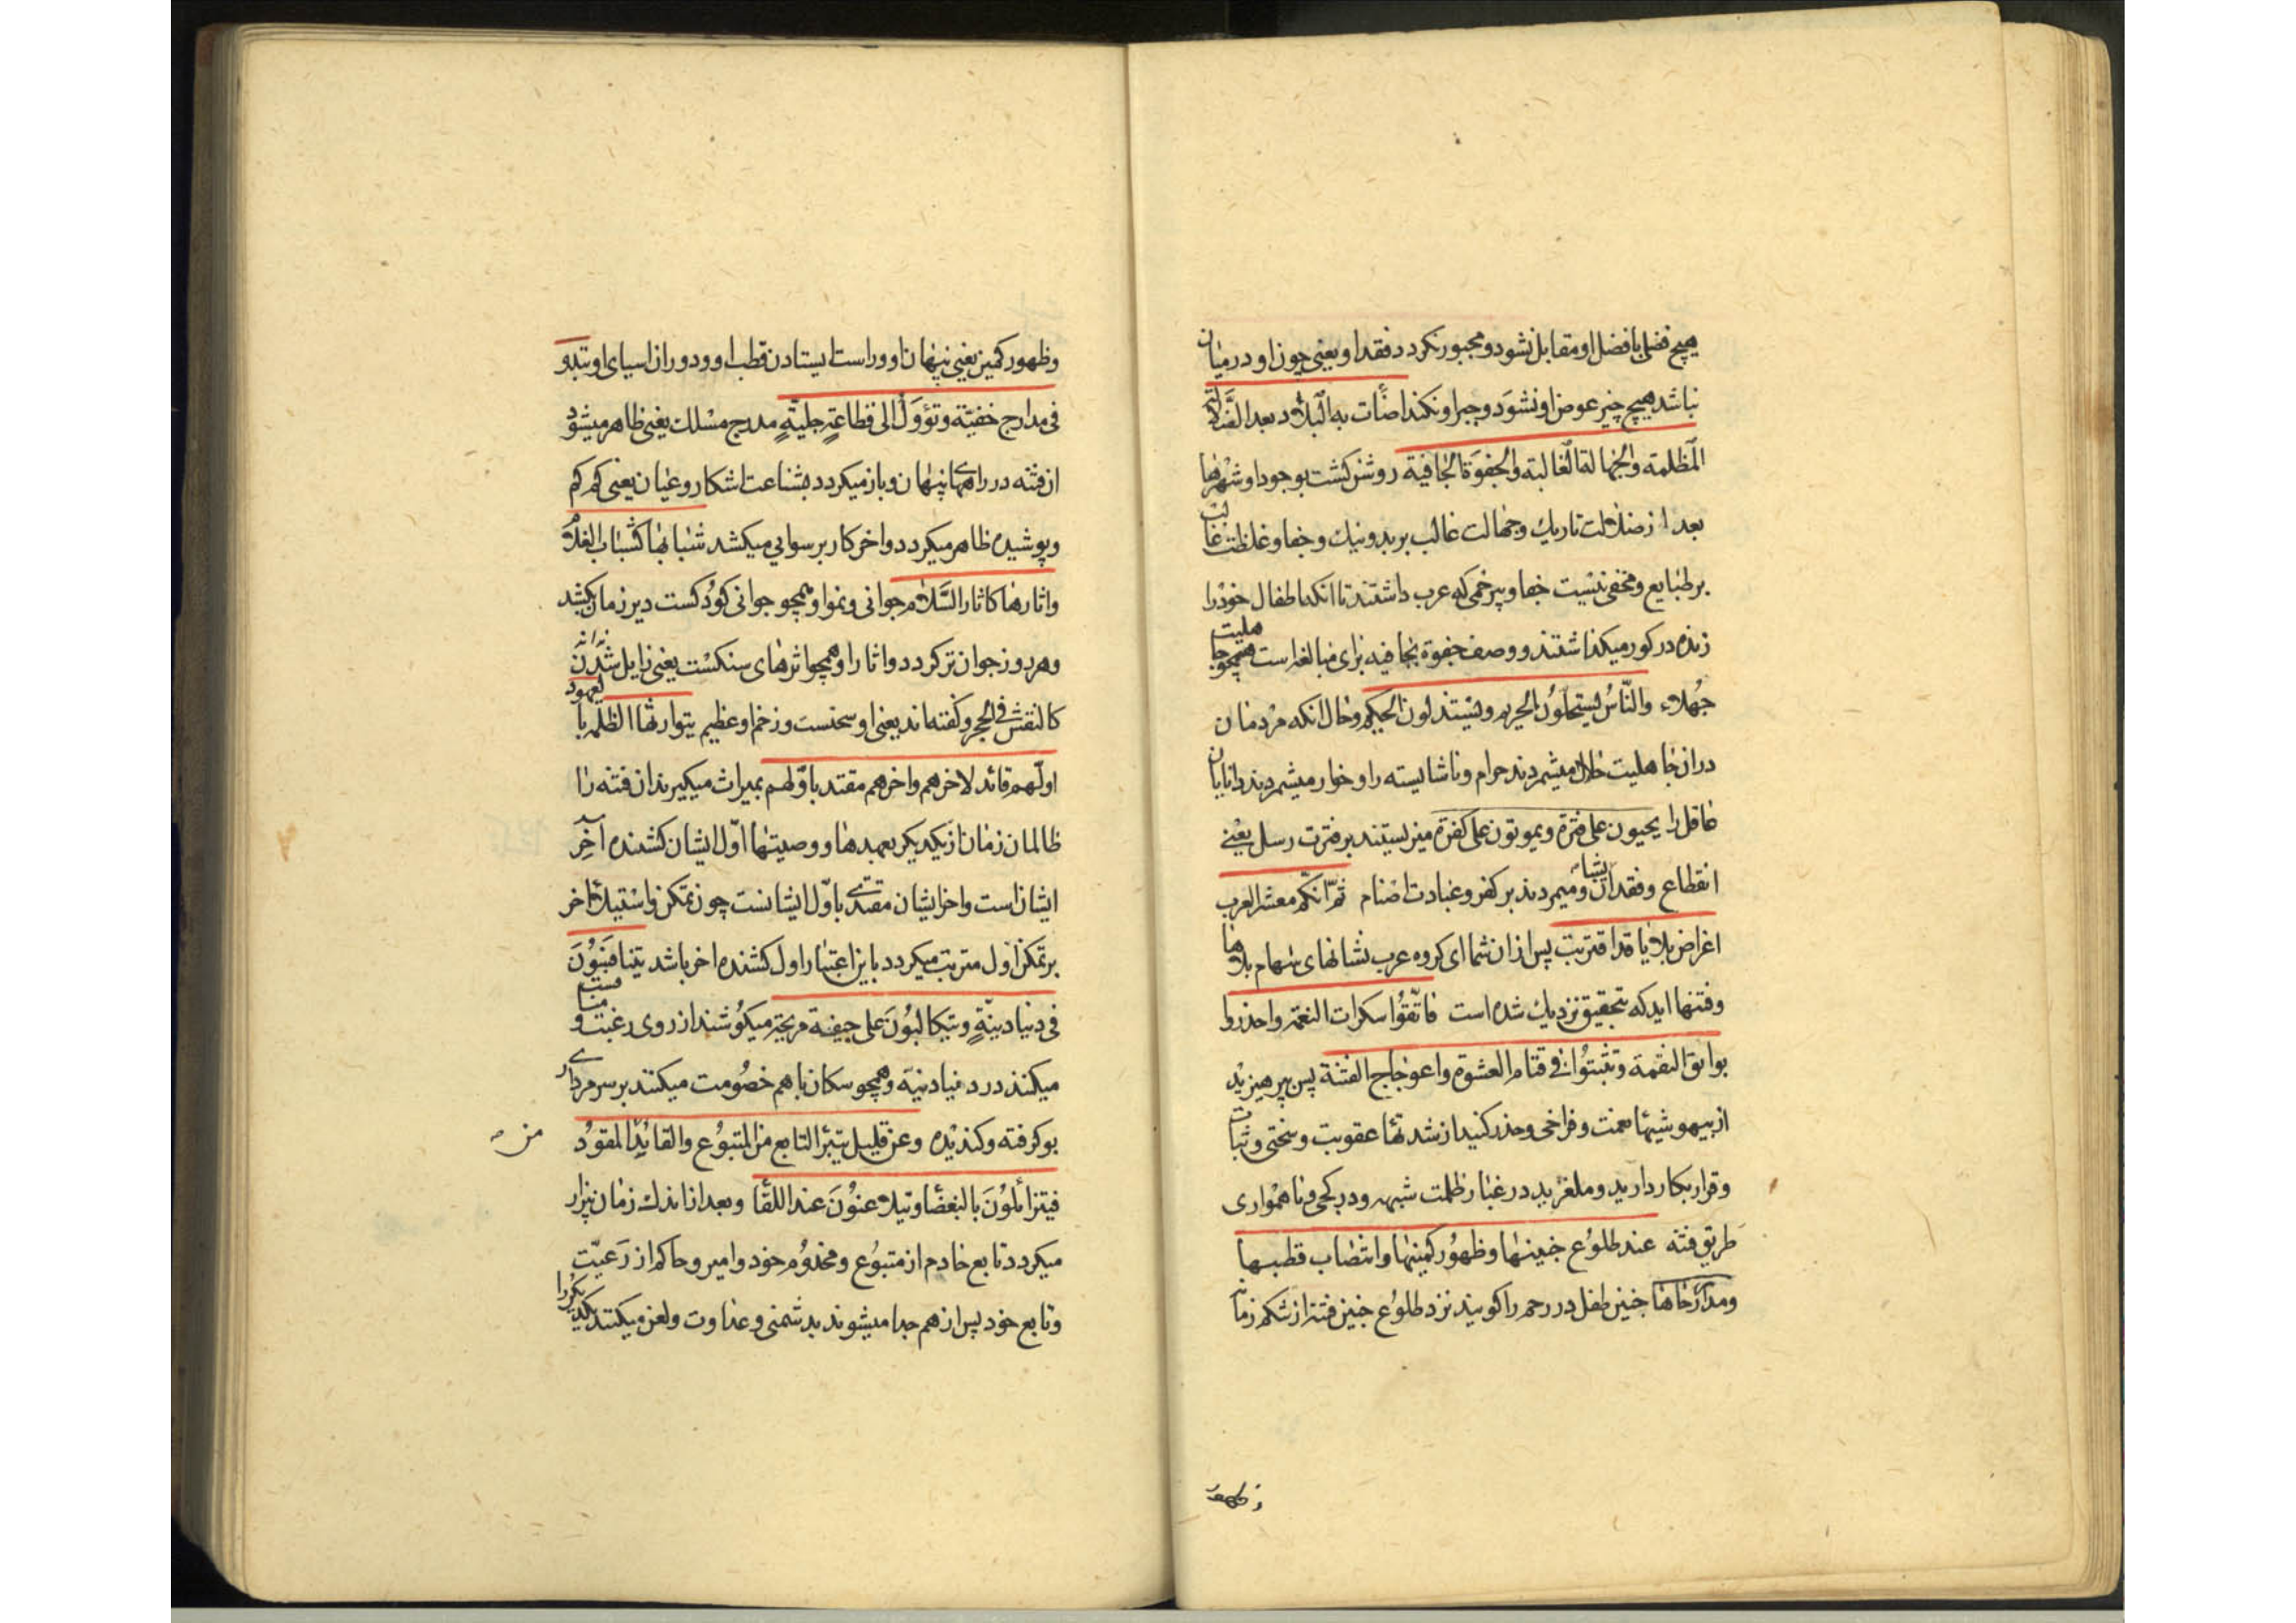 هیچ فضل با فضل او مقابل نشود و مجبور نکردد فقد او یعنی چون او در میان
نباشد هیچ چیز عوض او نشود و جبر او نکند اضأت به البلاد بعد الضّلالة
المظلمه والجهالة الغالبة والجفوة الجافیة روشن کشت بوجود او شهرها
بعد از ضلالت تاریك و جهالت غالب بر بد و نیك و جفا و غلظت غالب
بر طبایع و مخفی نیست جفا و بیرحمی که عرب داشتند تا انکه اطفال خود را
زنده در کور میکذاشتند و وصف جفوة بجافیه برای مبالغه است همچو جاهلیت
جهلاء والنّاس یستحلّون الحریم ویستذلون الحکیم وحال انکه مردمان
دران جاهلیت حلال میشمردند حرام و ناشایسته را و خوار میشمردند دانایان
عاقل را یحیون علی فترة ویموتون علی کفرة میزیستند بر فترت رسل یعنی
انقطاع و فقدان ایشان و میمردند بر کفر و عبادت اصنام ثمّ انّکم معشر العرب
اغراض بلایا قد اقتربت پس ازان شما ای کروه عرب نشانهای سهام بلاها
و فتنها اید که بتحقیق نزدیك شده است فاتّقوا سکرات النعمة واحذروا
بوایق النقمة وتثبتوا فی قتام العشوة واعوجاج الفتنة پس بپرهیزید
از بیهوشیهای نعمت و فراخی وحذر کنید از شدتهای عقوبت و سختی و ثبات
و قرار بکار دارید و ملغزید در غبار ظلمت شبهه و در کجی و ناهمواری
طریق فتنه عند طلوع جنینها وظهور کمینها وانتصاب قطبها
ومدار رحاها جنین طفل در رحم را کویند نزد طلوع جنین فتنه از شکم زمانه
و ظهور
وظهور کمین یعنی پنهان او و راست ایستادن قطب او و دوران اسیای او تبدو
فی مدارج خفیّة وتؤول الی فظاعة جلیّة مدرج مسلك یعنی ظاهر میشود
ان فتنه در راههای پنهان و باز میکردد بشناعت اشکار و عیان یعنی کم کم
و پوشیده ظاهر میکردد و اخر کار برسوایی میکشد شبابها کشباب الغلام
واثارها کاثار السّلام جوانی و نمو او همچو جوانی کودکست دیر زمان نکشد
و هر روز جوان تر کردد و اثار او همچو اثرهای سنکست یعنی زایل نشدنی
کالنقش فی الحجر و کفته اند یعنی او سختست و زخم او عظیم یتوارثها الظلمة بالعهود
اوّلهم قائد لاخرهم واخرهم مقتد باوّلهم بمیراث میکیرند ان فتنه را
ظالمان زمان از یکدیکر بعهدها و وصیتها اوّل ایشان کشنده آخر
ایشان است و اخر ایشان مقتدی باوّل ایشانست چون تمکن و استیلای اخر
بر تمکن اول مترتب میکردد باین اعتبار اول کشنده اخر باشد یتنافسون
فی دنیا دنیّة ویتکالبون علی جیفة مریحة میکوشند از روی رغبت و منافست
میکنند در دنیا دنیه و همچو سکان با هم خصومت میکنند بر سر مرداری
بو کرفته و کندیده وعن قلیل یتبرّأ التابع من المتبوع والقائد من المقود
فیتزائلون بالبغضاء ویتلاعنون عند اللقاء وبعد از اندك زمان بیزار
میکردد تابع خادم از متبوع و مخدوم خود و امیر و حاکم از رعیّت
و تابع خود پس از هم جدا میشوند بدشمنی و عداوت و لعن میکنند یکدیکر را